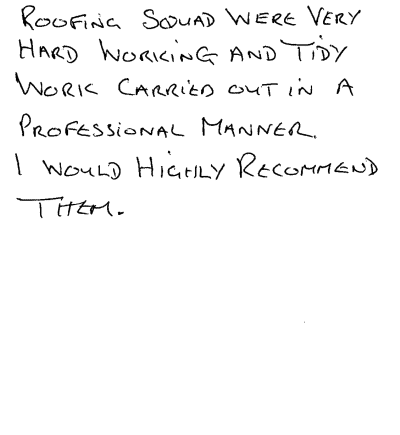 ROOFING SQUAD WERE VERY
HARD WORKING AND TIDY
WORK CARRIED OUT IN A
PROFESSIONAL MANNER.
I WOULD HIGHLY RECOMMEND
THEM.